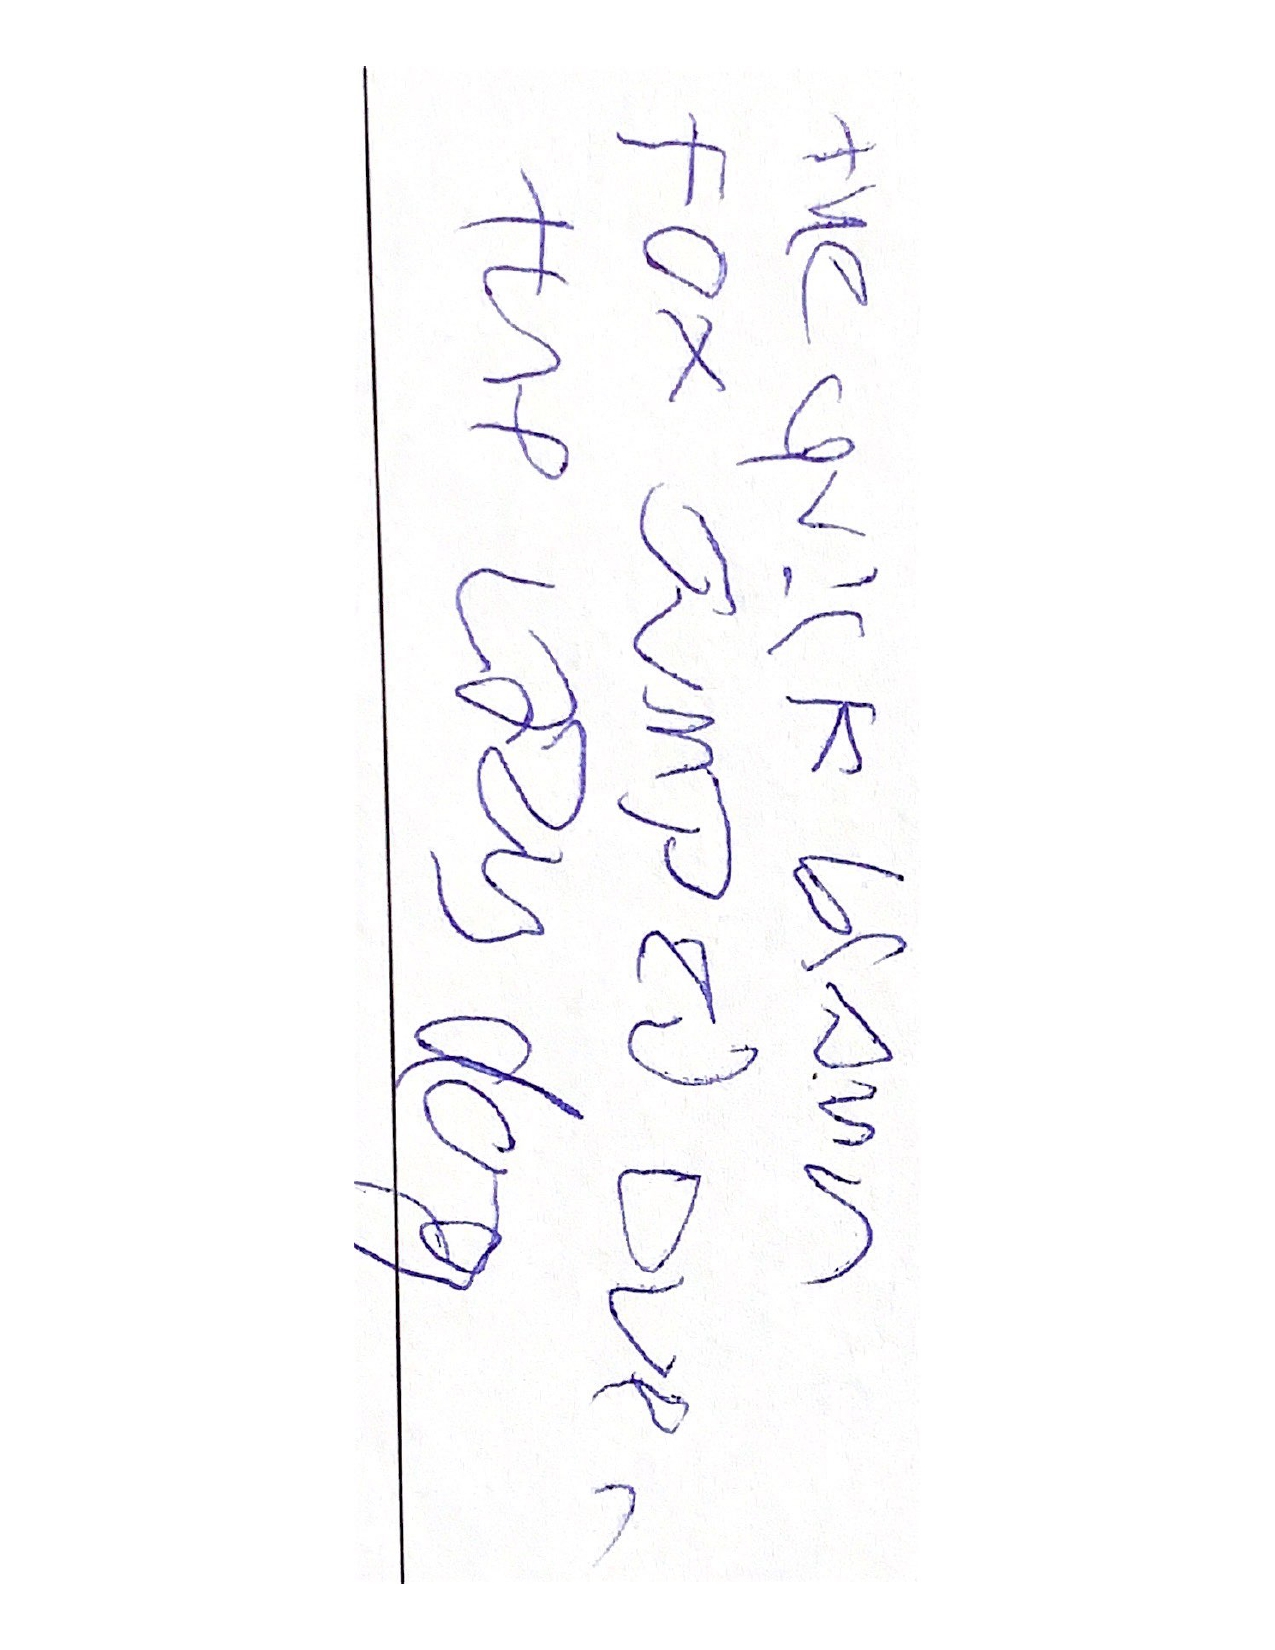 the quick brown
fox jumped over
the lazy dog